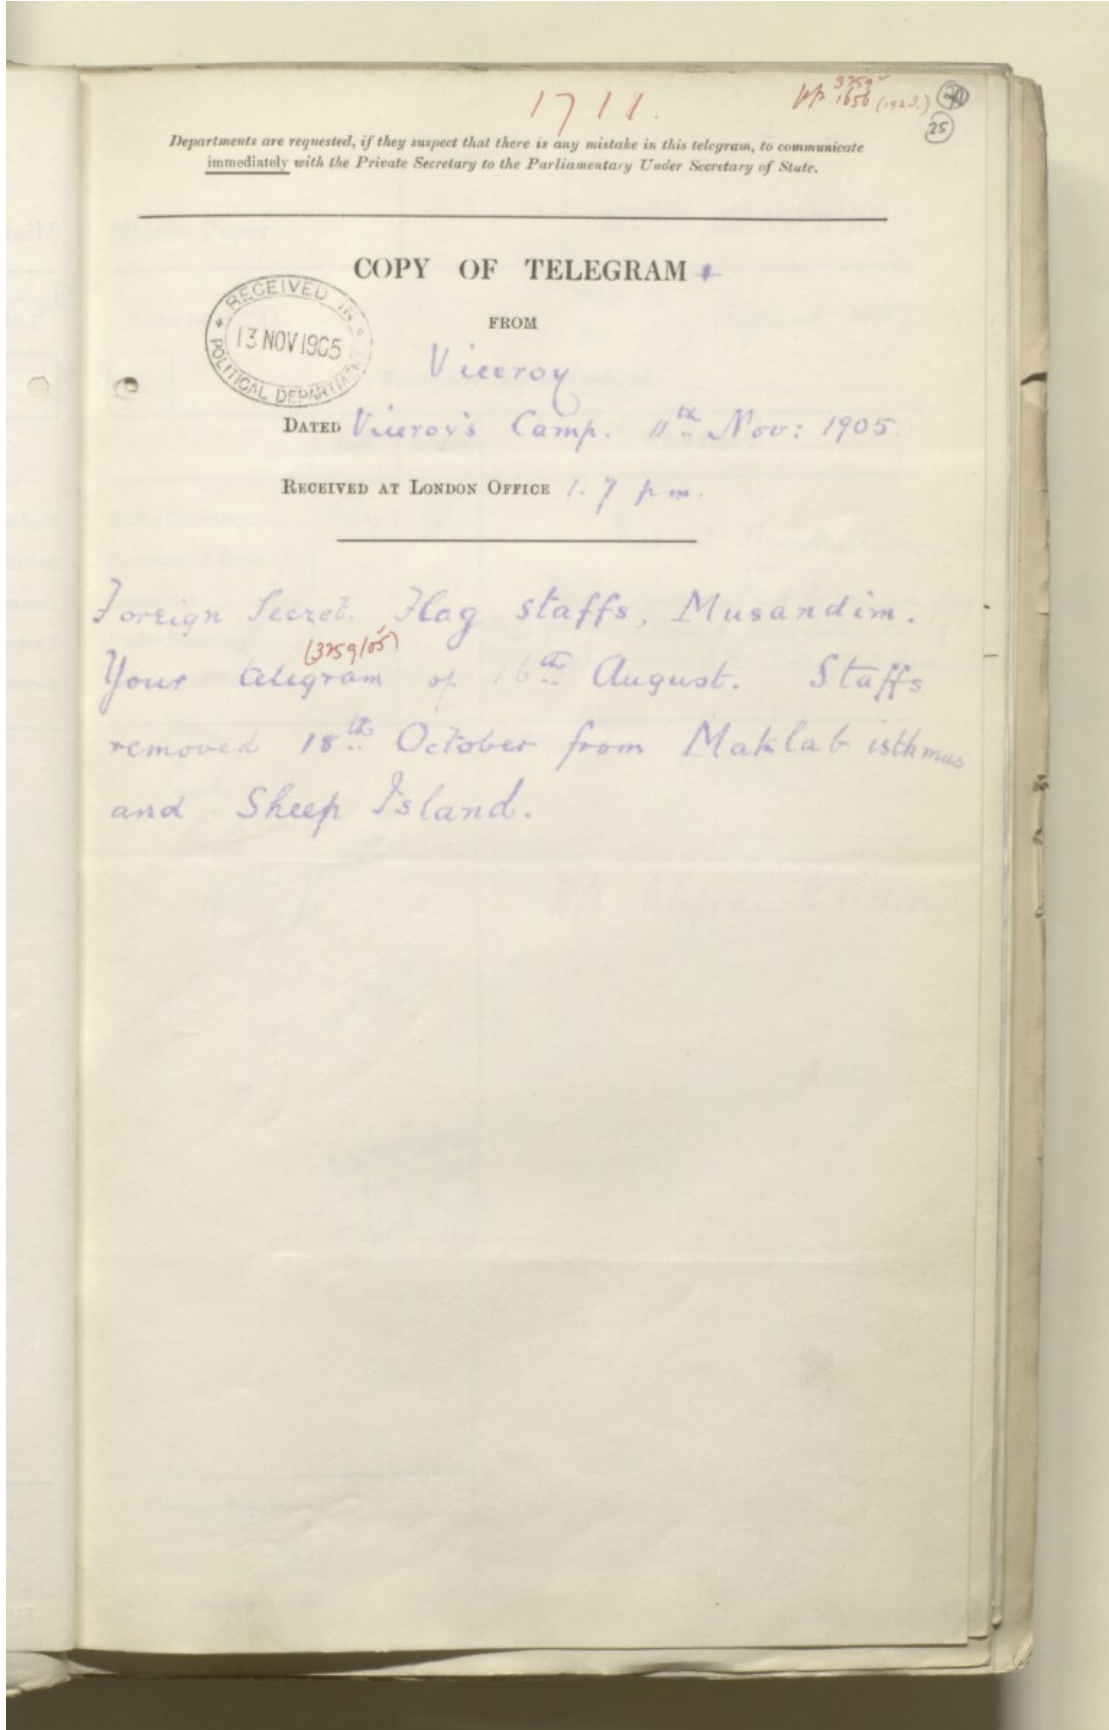 1711.
3259
1656 (1923.)
25
Departments are requested, if they suspect that there is any mistake in this telegram, to communicate
immediately with the Private Secretary to the Parliamentary Under Secretary of State.
COPY OF TELEGRAM
RECEIVED IN
13 NOV 1905
POLITICAL DEPARTMENT
FROM
Viceroy
DATED Viceroy's Camp. 11th Nov: 1905.
RECEIVED AT LONDON OFFICE 1.7 pm.
Foreign Secret. Flag staffs, Musandim.
(3259/05)
Your telegram of 16th August. Staffs
removed 18th October from Maklab isthmus
and Sheep Island.